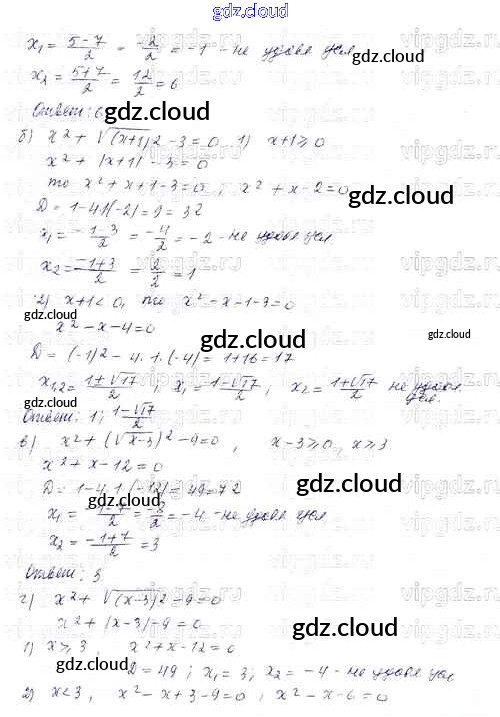 gdz.cloud
x₁ = (5-7)/2 = -2/2 = -1 - не удовл усл.
x₂ = (5+7)/2 = 12/2 = 6
Ответ: 6
gdz.cloud
б) x² + √(x+1)² - 3 = 0 1) x+1 ⩾ 0
x² + |x+1| - 3 = 0
то x² + x + 1 - 3 = 0 ; x² + x - 2 = 0
gdz.cloud
D = 1-4·1(-2) = 9 = 3²
x₁ = (-1-3)/2 = -4/2 = -2 - не удовл усл.
x₂ = (-1+3)/2 = 2/2 = 1
2) x+1 < 0, то x² - x - 1 - 3 = 0
x² - x - 4 = 0
gdz.cloud
gdz.cloud
D = (-1)² - 4·1·(-4) = 1+16 = 17
x₁,₂ = (1±√17)/2 ; x₁ = (1-√17)/2 ; x₂ = (1+√17)/2 не удовл усл.
gdz.cloud
Ответ: 1; (1-√17)/2
в) x² + (√x-3)² - 9 = 0 , x-3 ⩾ 0, x ⩾ 3
x² + x - 12 = 0
D = 1-4·1·(-12) = 49 = 7²
gdz.cloud
gdz.cloud
x₁ = (-1-7)/2 = -8/2 = -4 - не удовл усл
x₂ = (-1+7)/2 = 3
Ответ: 3
г) x² + √(x-3)² - 9 = 0
x² + |x-3| - 9 = 0
gdz.cloud
1) x ⩾ 3, x² + x - 12 = 0
gdz.cloud
D = 49 ; x₁ = 3; x₂ = -4 - не удовл усл
2) x < 3, x² - x + 3 - 9 = 0 ; x² - x - 6 = 0
gdz.cloud